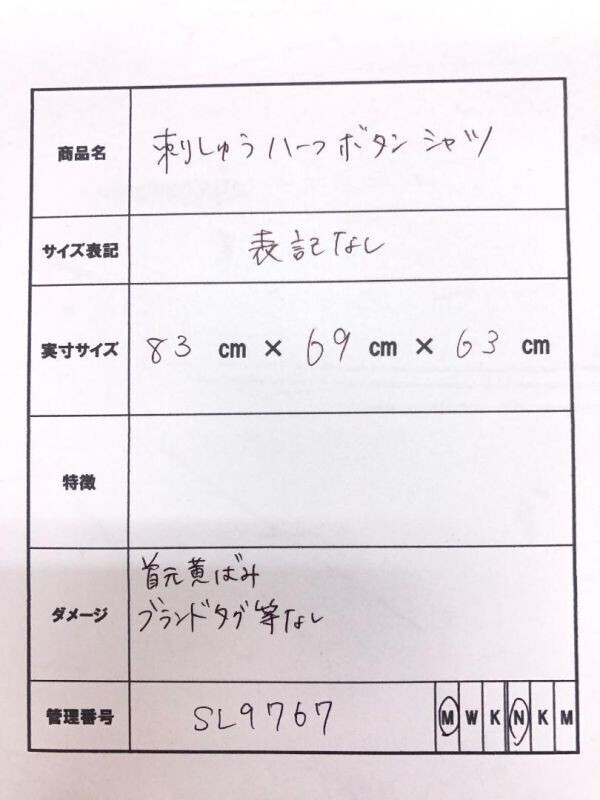 商品名 刺しゅうハーフボタンシャツ
サイズ表記 表記なし
実寸サイズ 83 cm × 69 cm × 63 cm
特徴
首元黄ばみ
ダメージ ブランドタグ等なし
管理番号 SL9767 M W K N K M